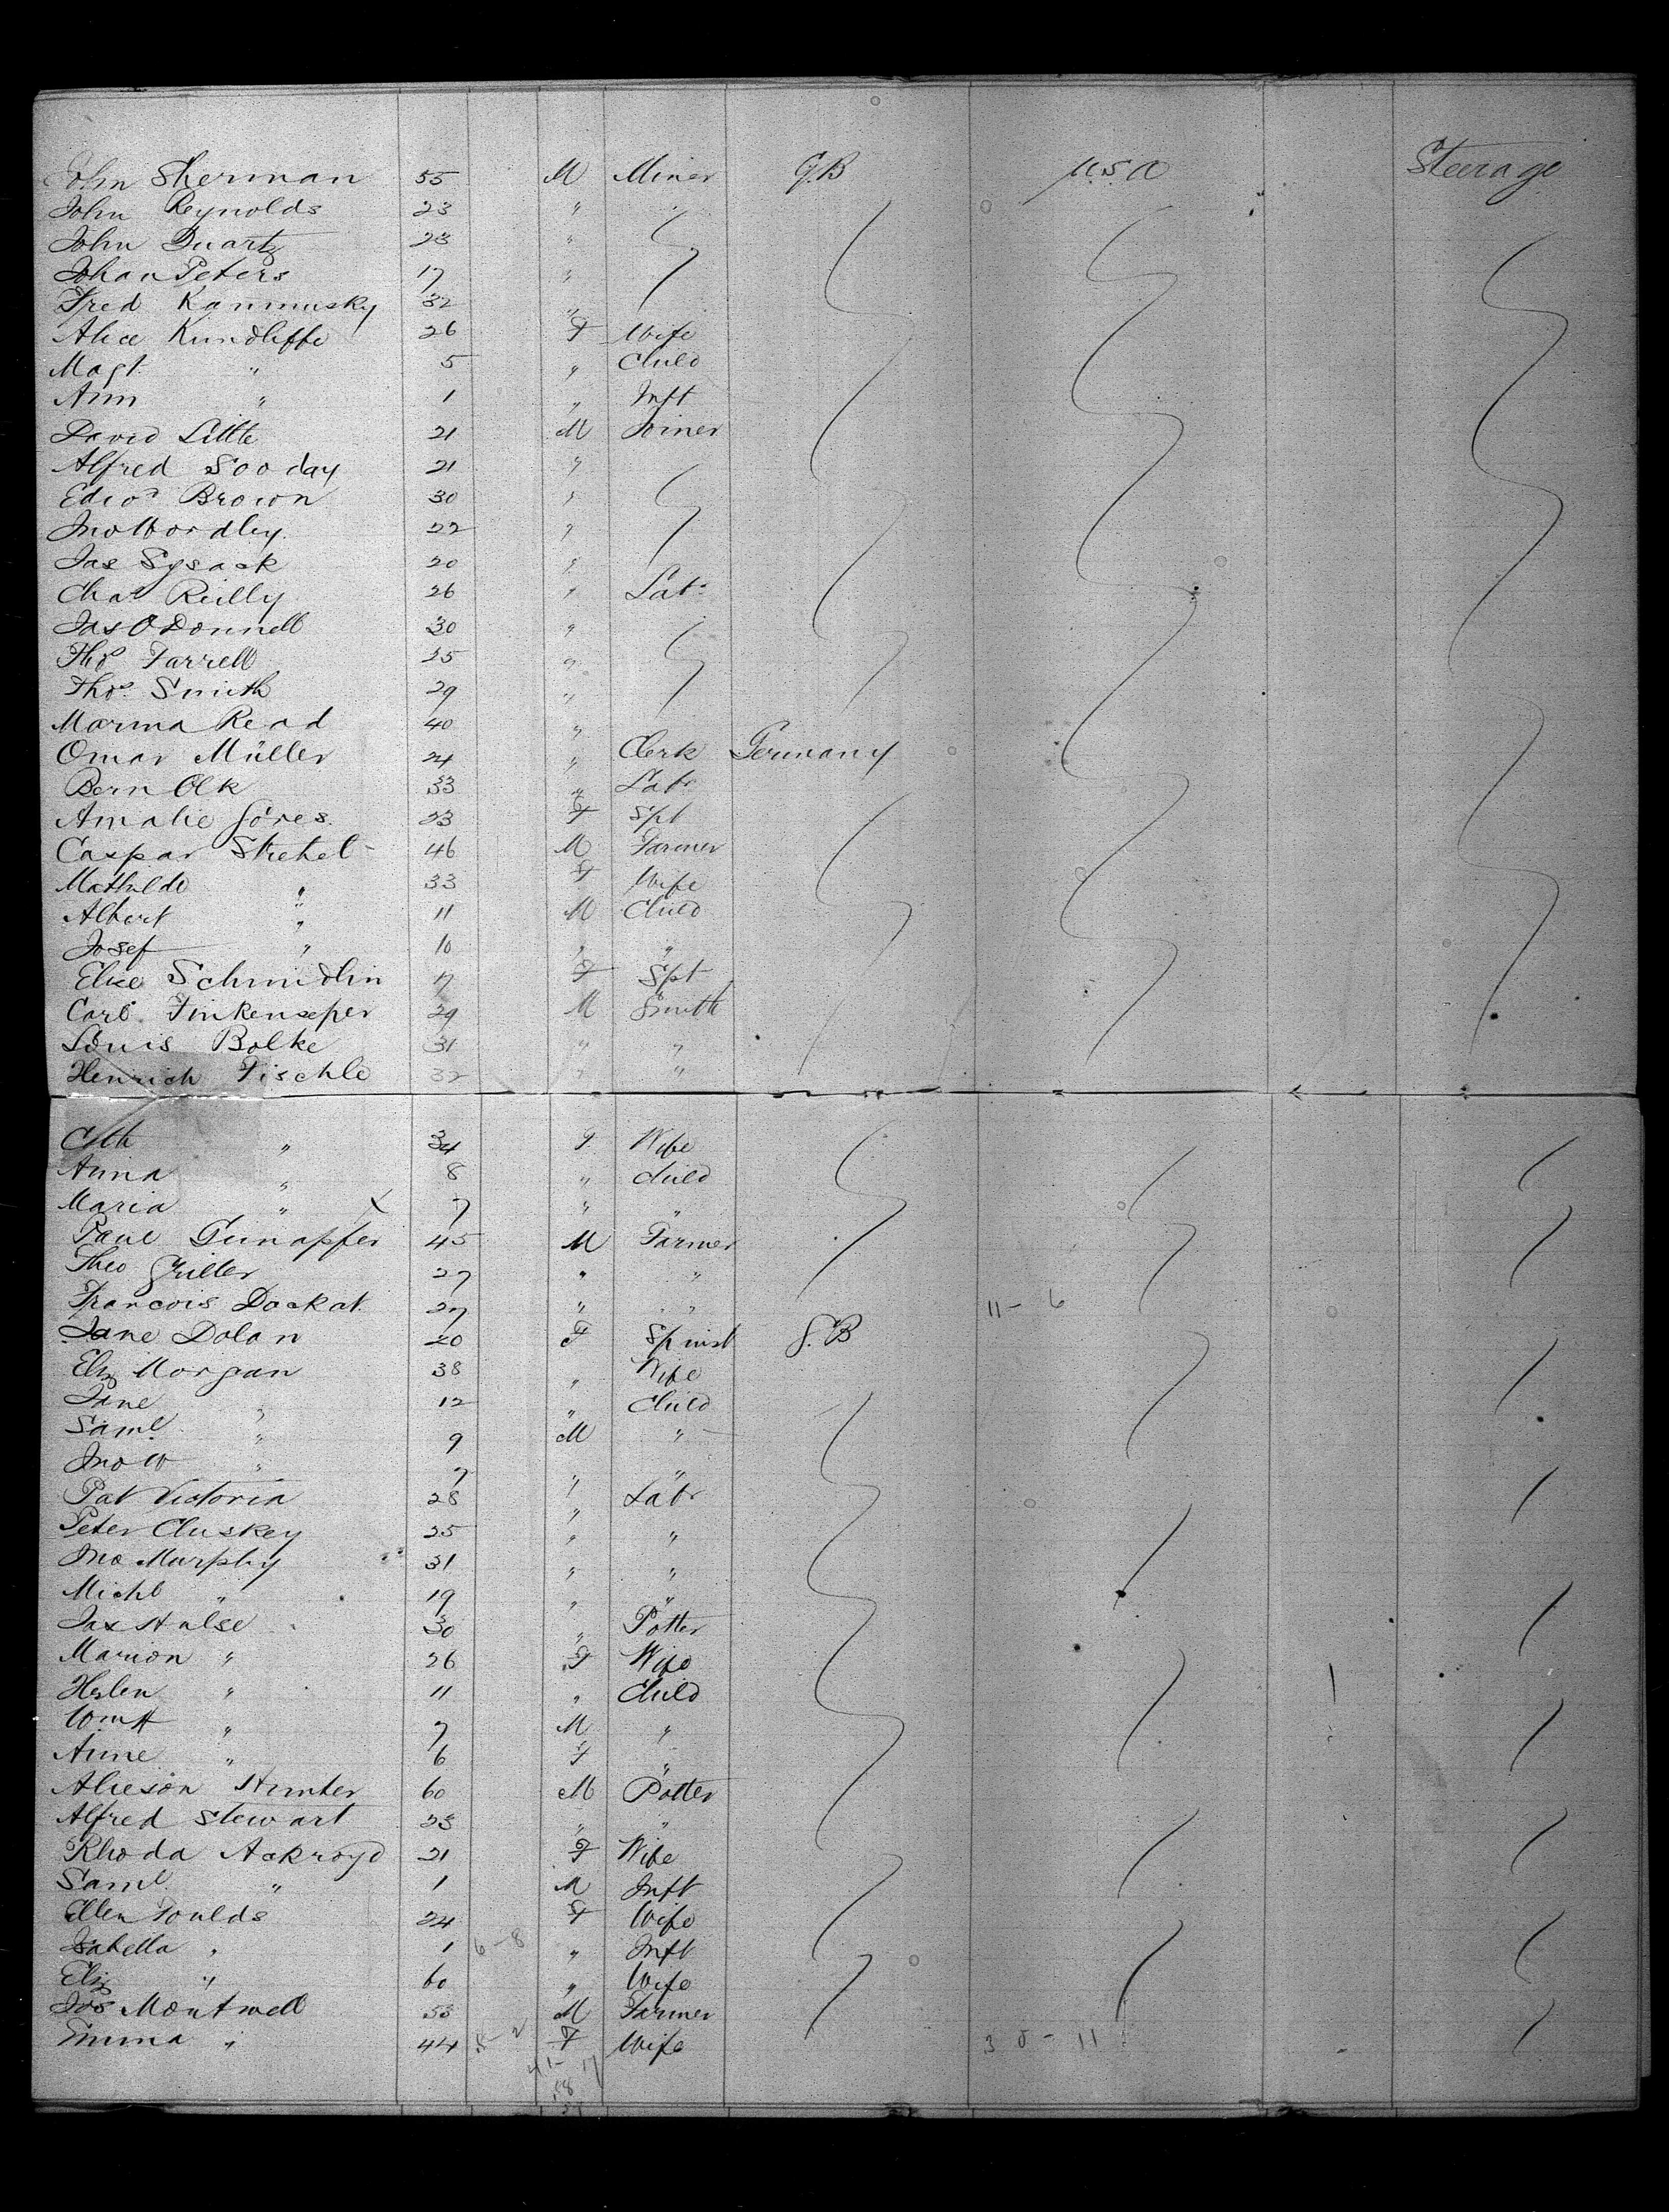 John Sherman 55 M Miner G.B U.S.A Steerage
John Reynolds 23 "
John Quartz 23 "
Johan Peters 17 "
Fred Kammusky 32 "
Alice Kundliffe 26 F Wife
Magt " 5 " Child
Ann " 1 " Inft
David Little 21 M Joiner
Alfred Sooday 21 "
Edwd Brown 30 "
Jno Wordley 22 "
Jas Sysack 20 "
Chas Reilly 26 " Labr
Jas O Donnell 30 "
Thos Farrell 25 "
Thos Smith 29 "
Read 40 "
Omar Müller 24 " Clerk Germany
Bern Olk 33 " Labr
Amalie Gores 23 F Spt
Caspar Strehel 46 M Farmer
Mathilde " 33 F Wife
Albert " 11 M Child
Josef " 10 " "
Elise Schmidlin 17 F Spt
Carl Finkenseper 29 M Smith
Louis Bolke 31 " "
Henrich Fischle 32 " "
Cath " 34 F. Wife
Anna " 8 " Child
Maria " X 7 " "
Paul 45 M Farmer
Theo Griller 27 " "
Francois Dockat 27 " " 11 - 6
Jane Dolan 20 F Spinst G.B
Eliz Morgan 38 " Wife
Jane " 12 " Child
Saml " 9 M "
Jno W " 7 " "
Pat Victoria 28 " Labr
Peter Cluskey 25 " "
Jno Murphy 31 " "
Michl " 19 " "
Jas Hulse 30 " Potter
Marion " 26 F Wife
Helen " 11 " Child
Wm H " 7 M "
Anne " 6 F "
Alieson Hunter 60 M Potter
Alfred Stewart 23 " "
Rhoda Ackroyd 21 F Wife
Saml " 1 M Inft
Ellen Foulds 24 F Wife
Isabella " 1 6-8 " Inft
Eliz " 60 " Wife
Jos Montwell 53 M Farmer
Emma " 44 5-2 F Wife 30 - 11